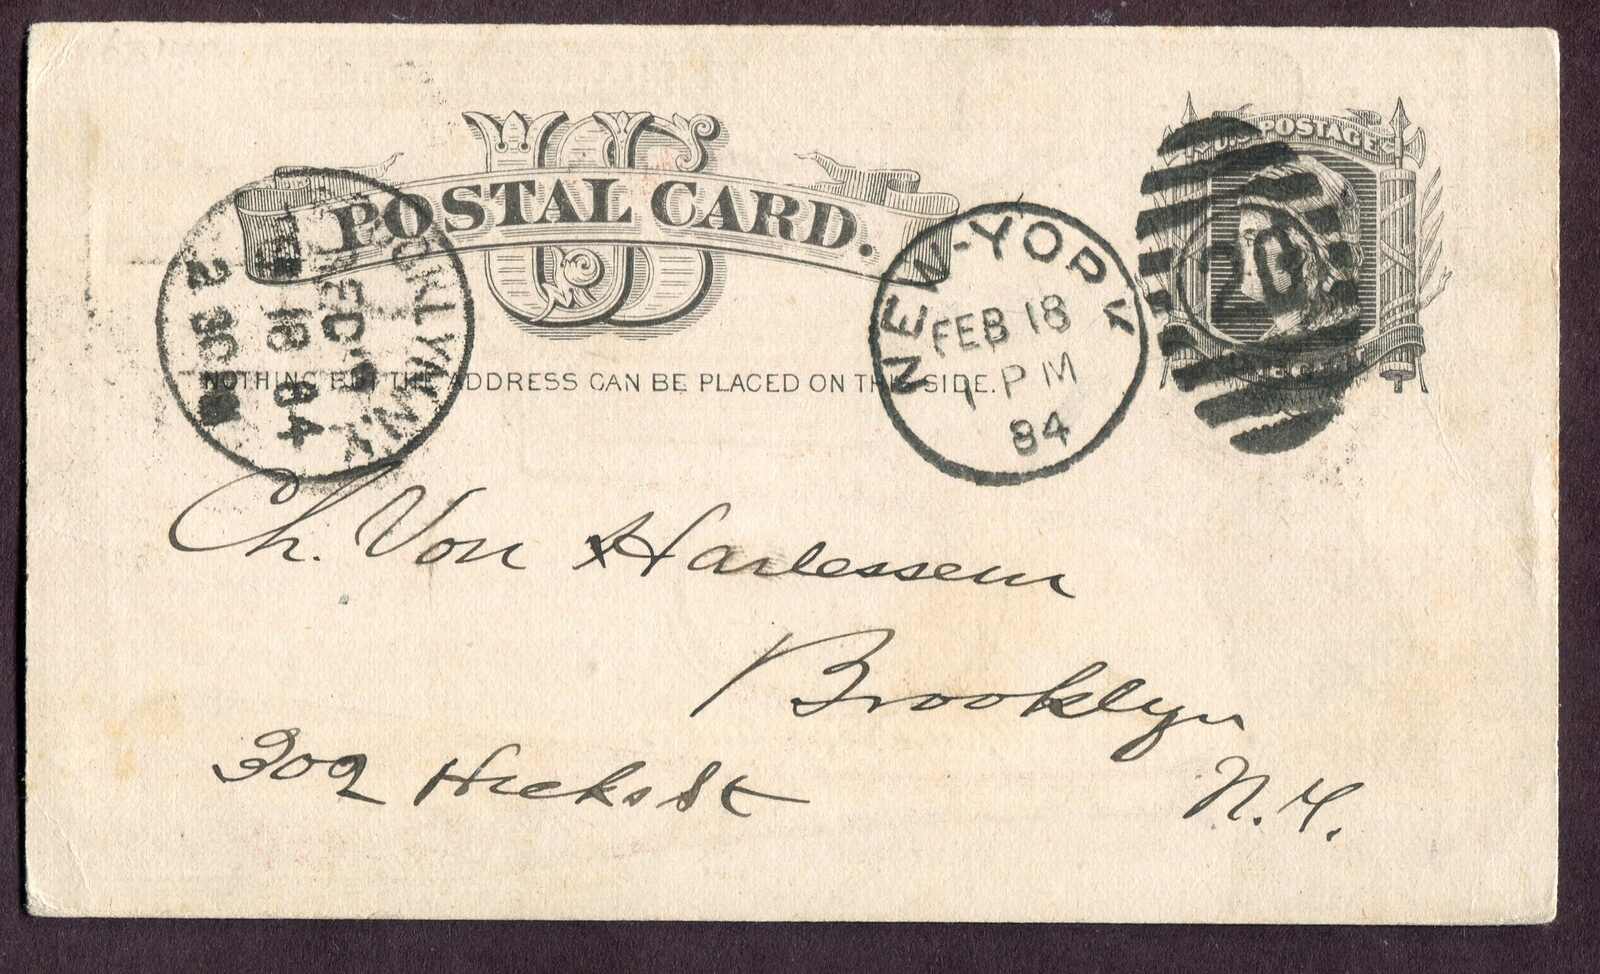 US
POSTAL CARD.
U.S. POSTAGE
NOTHING BUT THE ADDRESS CAN BE PLACED ON THIS SIDE.
BROOKLYN N.Y.
REC'D
18
84
2 30 PM
NEW-YORK
FEB 18
1 PM
84
20
Ch. Von Harlessem
Brooklyn
302 Hicks St
N.Y.